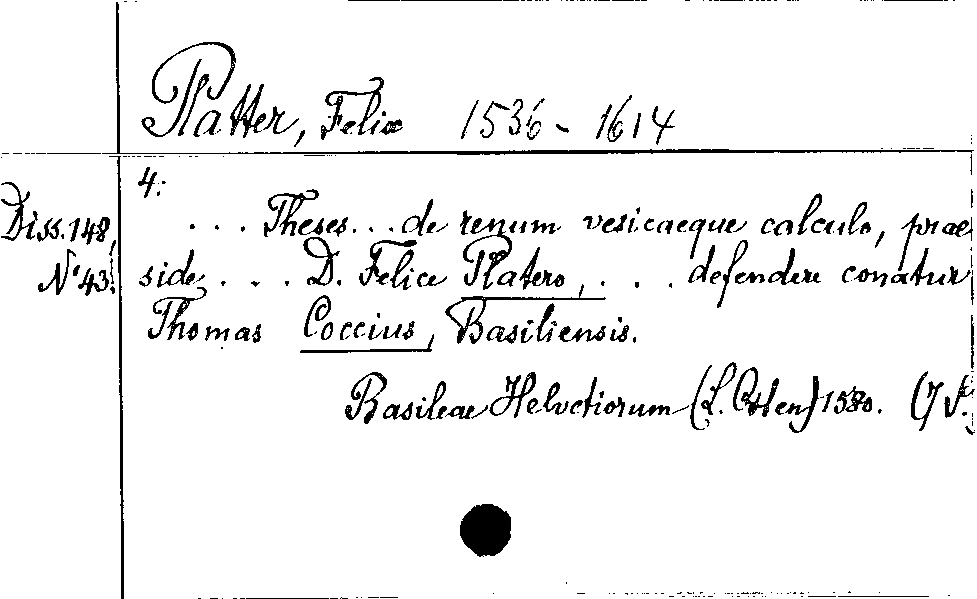 Platter, Felix 1536 - 1614
4:
Diss. 148,
No 43.
. . . Theses . . . de renum vesicaeque calculo, prae
side, . . . D. Felice Platero, . . . defendere conatur
Thomas Coccius, Basiliensis.
Basileae Helvetiorum (L. Osten) 1580.